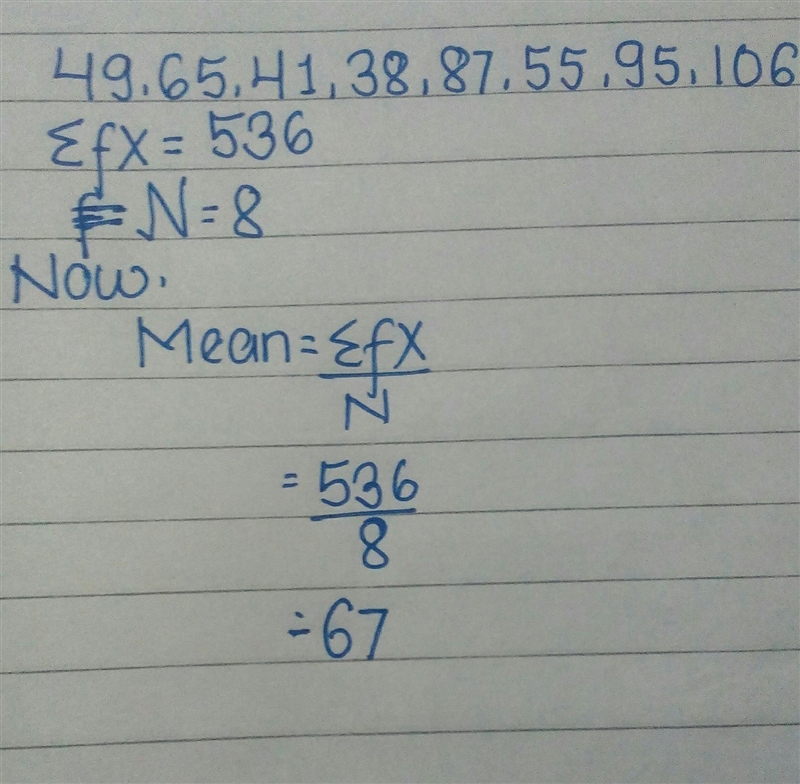 49,65,41,38,87,55,95,106
Σfx = 536
N=8
Now,
Mean = Σfx
N
= 536
8
= 67